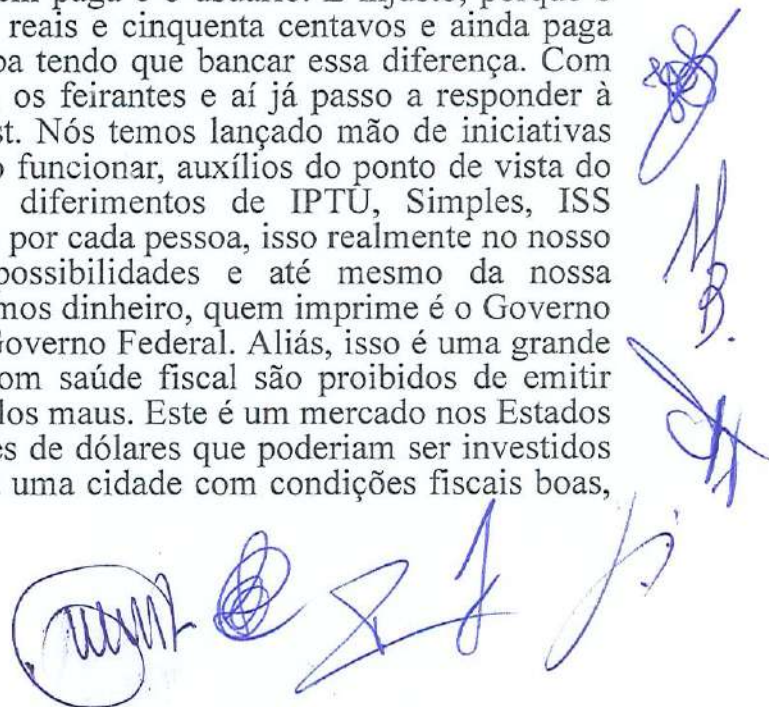 em paga é o usuário. É injusto, porque o
reais e cinquenta centavos e ainda paga
ba tendo que bancar essa diferença. Com
os feirantes e aí já passo a responder à
st. Nós temos lançado mão de iniciativas
o funcionar, auxílios do ponto de vista do
diferimentos de IPTU, Simples, ISS
por cada pessoa, isso realmente no nosso
possibilidades e até mesmo da nossa
mos dinheiro, quem imprime é o Governo
Governo Federal. Aliás, isso é uma grande
om saúde fiscal são proibidos de emitir
los maus. Este é um mercado nos Estados
es de dólares que poderiam ser investidos
uma cidade com condições fiscais boas,